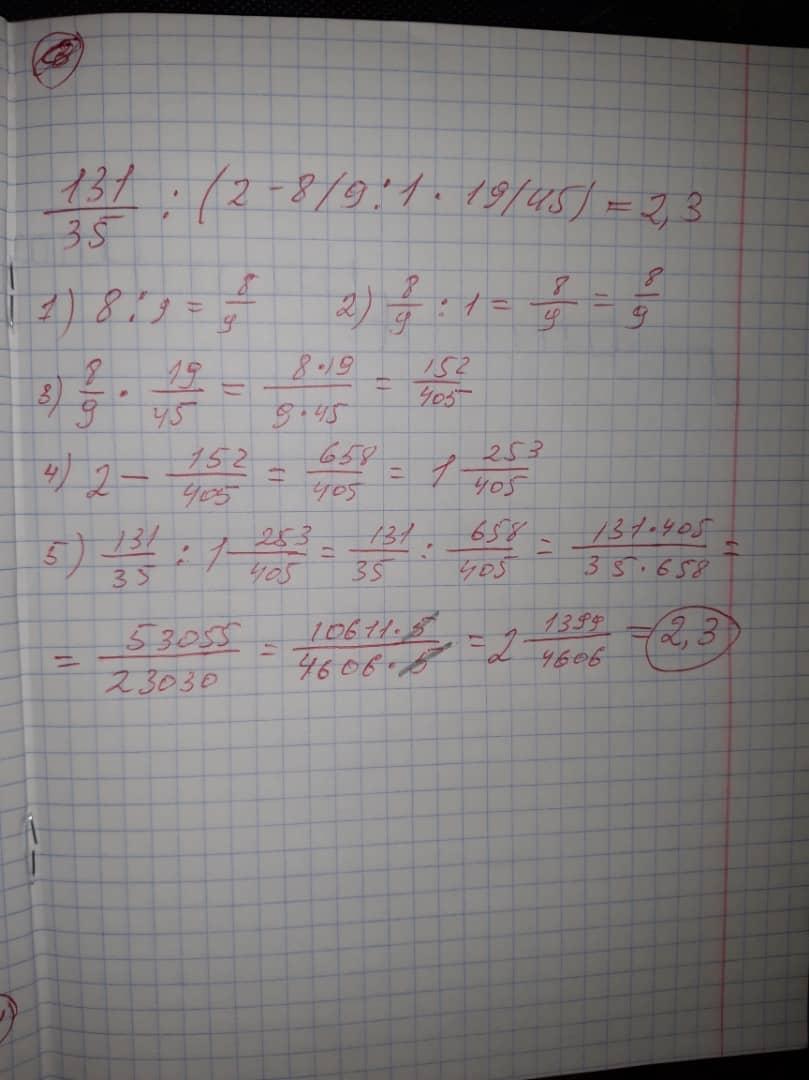 131/35 : (2 - 8/9 : 1 · 19/45) = 2,3
1) 8 : 9 = 8/9 2) 8/9 : 1 = 8/9 = 8/9
3) 8/9 · 19/45 = 8·19/9·45 = 152/405
4) 2 - 152/405 = 658/405 = 1 253/405
5) 131/35 : 1 253/405 = 131/35 : 658/405 = 131·405/35·658 =
= 53055/23030 = 10611·5/4606·5 = 2 1399/4606 = 2,3